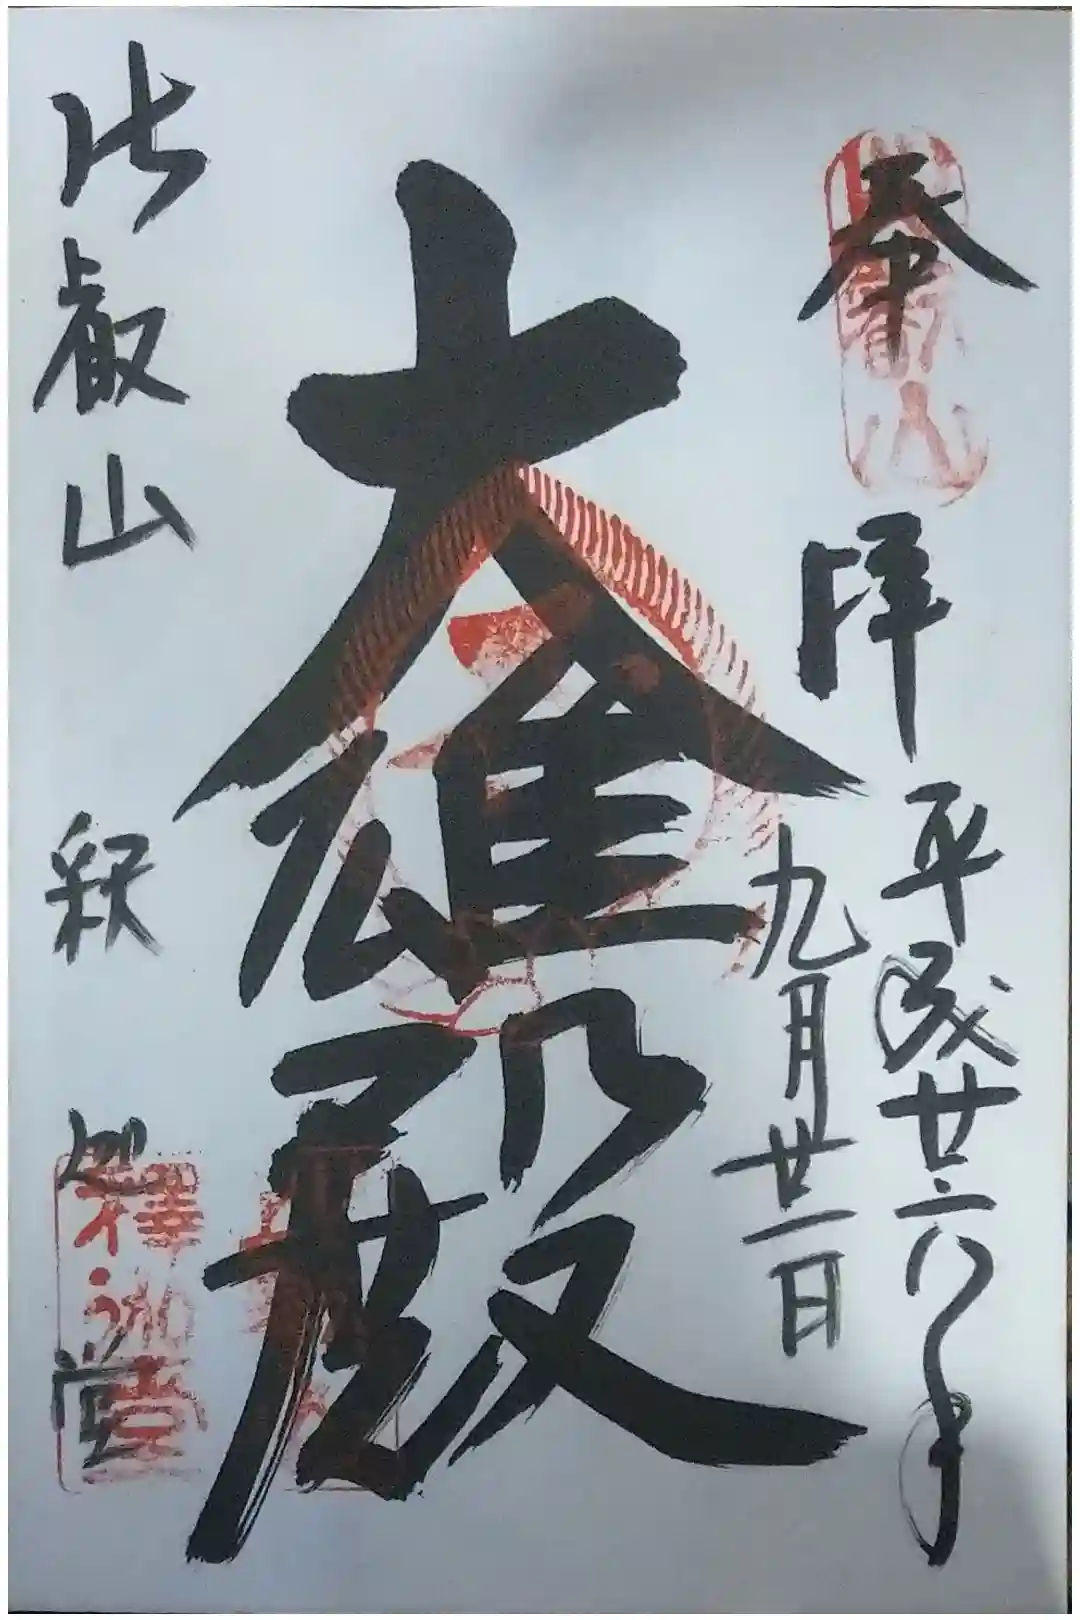 奉拝
平成廿六年
九月廿一日
大雄殿
比叡山
釈迦堂
比叡山
釋迦堂